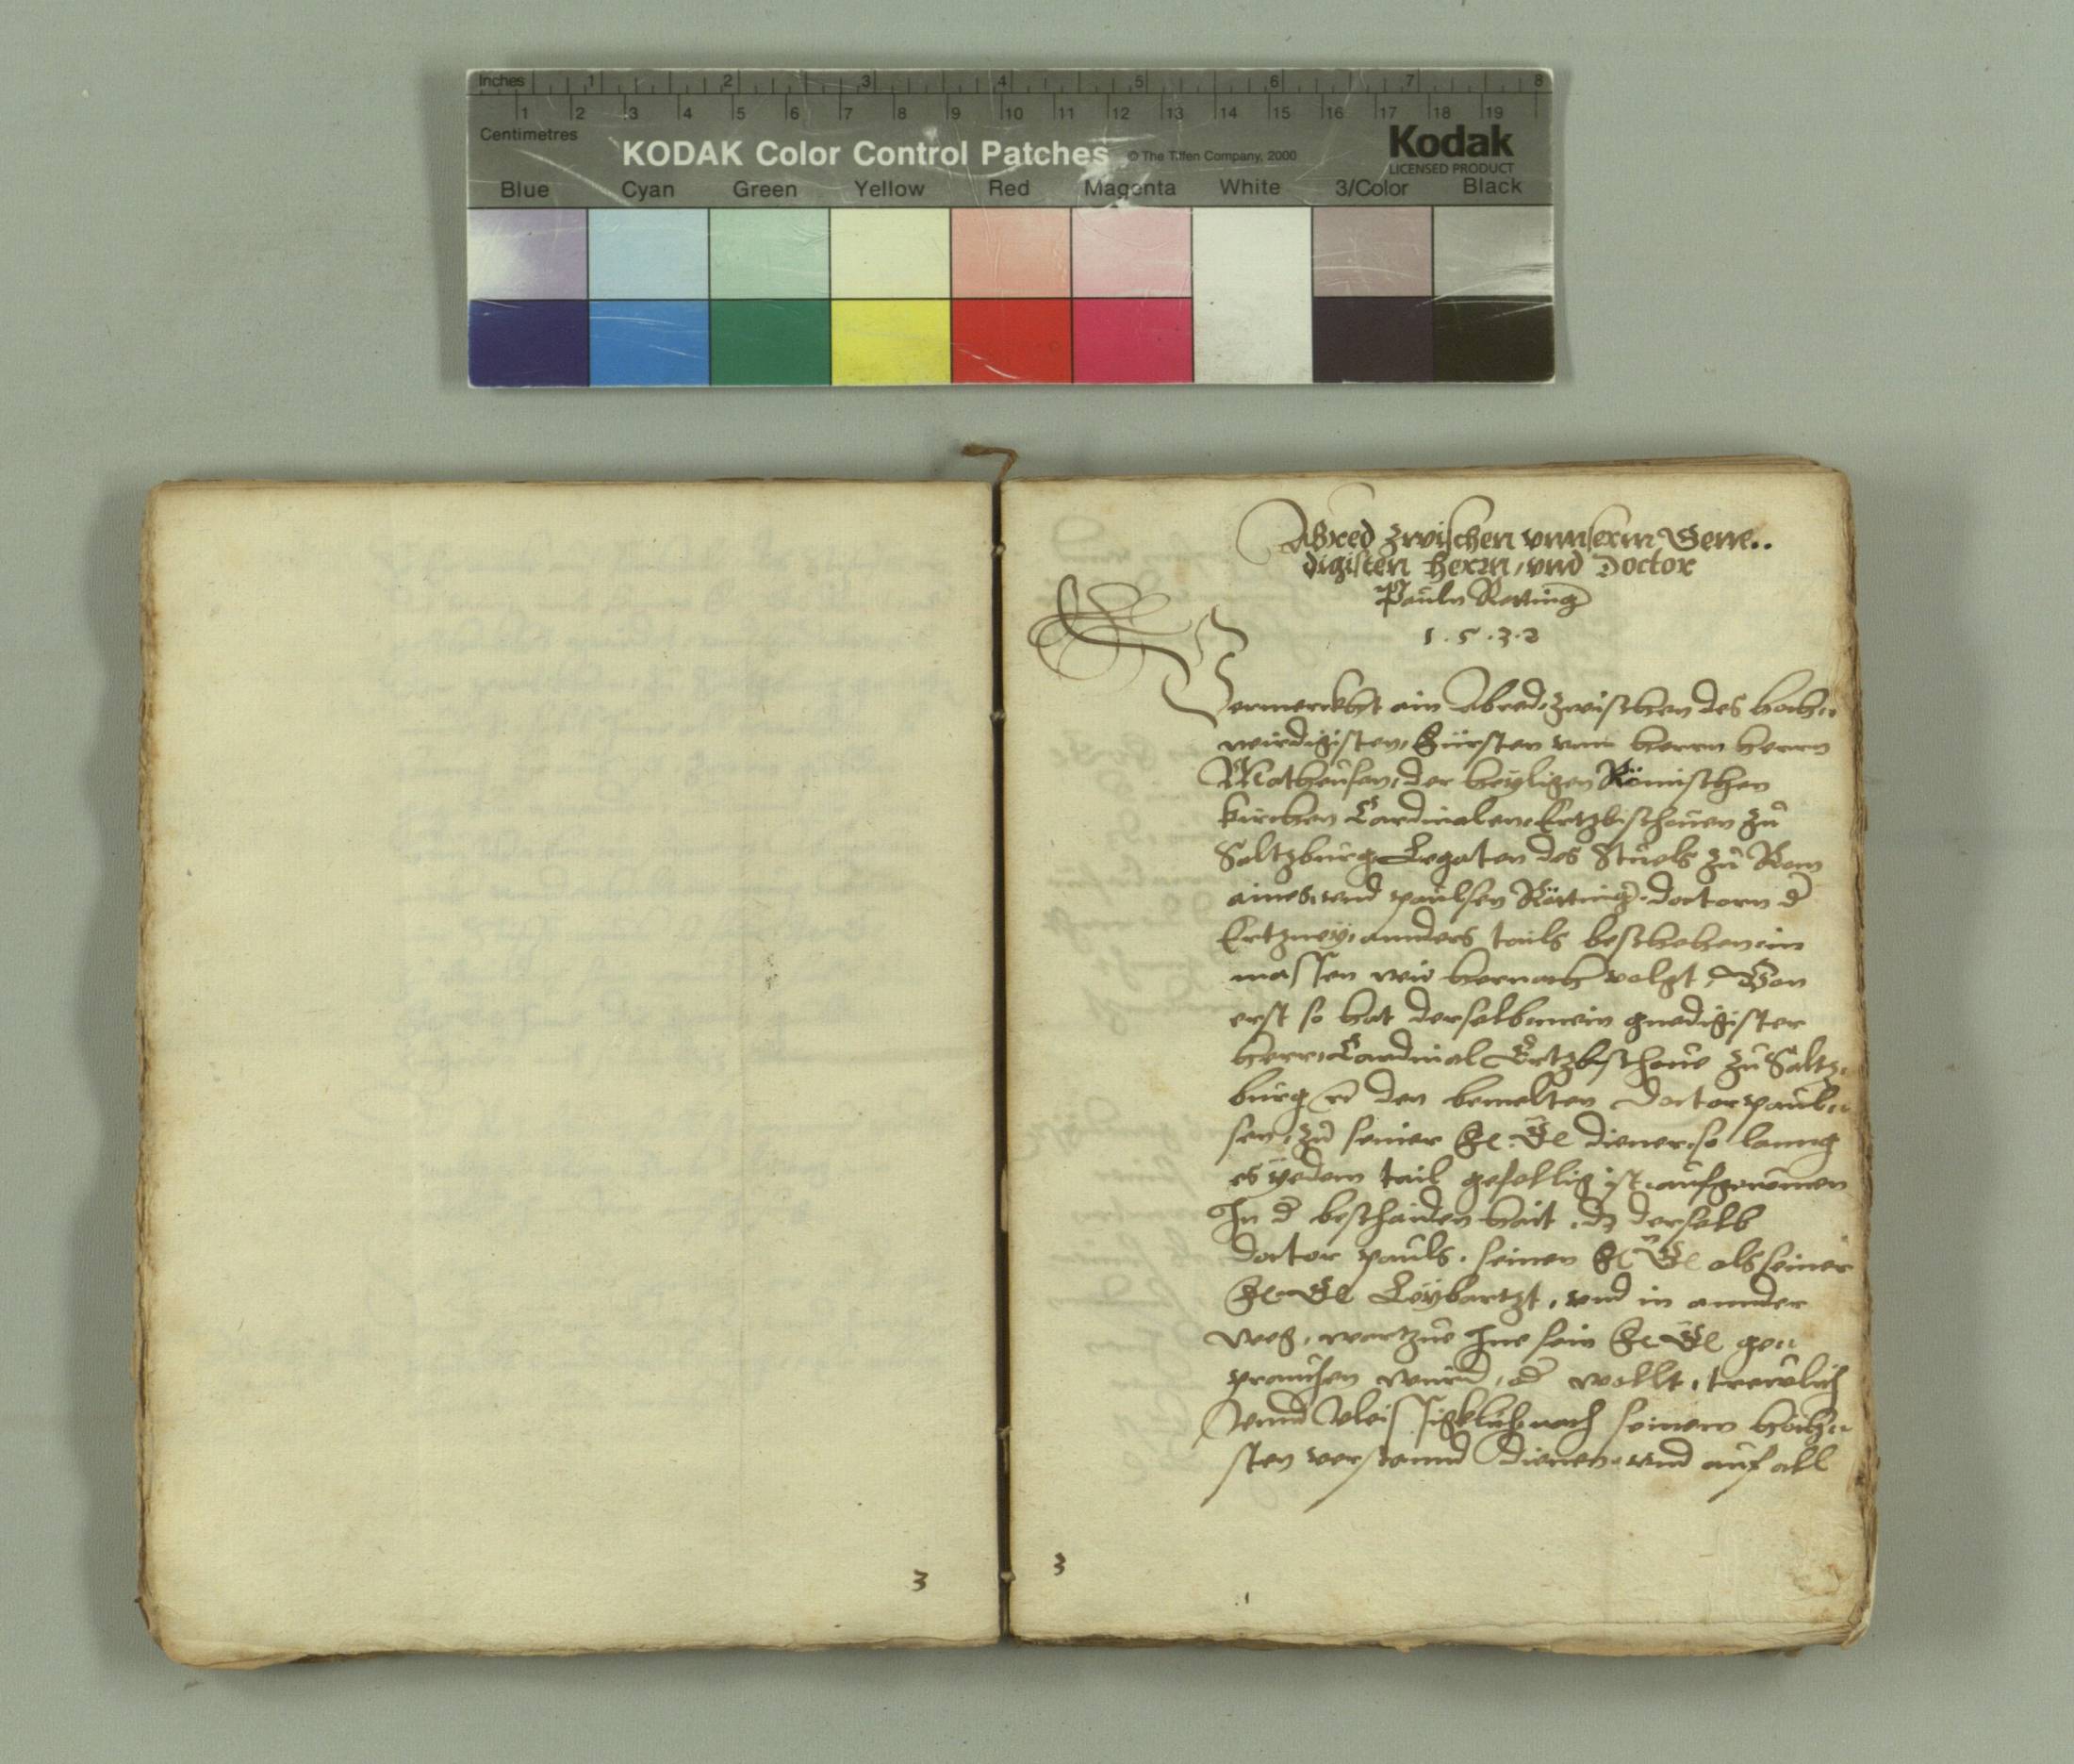 Inches 1 2 3 4 5 6 7 8
1 2 3 4 5 6 7 8 9 10 11 12 13 14 15 16 17 18 19
Centimetres
KODAK Color Control Patches © The Tiffen Company, 2000 Kodak
LICENSED PRODUCT
Blue Cyan Green Yellow Red Magenta White 3/Color Black
Abred zwischen unnserm Gene..
digisten herrn, und Doctor
Pauln Retting
1.5.3.2
Vermerckht ain Abred, zwischen des hoch„
wirdigisten, Fürsten unn herrn herrn
Matheusen, der heyligen Römischen
kirchen Cardinalen, Ertzbischoven zů
Saltzburg Legaten des Stuels zů Rom
aines, und paulsen Rötting, doctorn d
Ertzney, annders tails beschehen, in
massen wie hernach volgt, Von
erst so hat derselb mein gnedigister
herr, Cardinal Ertzbischove zů Saltz„
burg den bemelten Doctor paul„
sen, zů seiner F G diener, so lanng
es yedem tail gefellig ist, aufgenomen
In d beschaidenhait, dz derselb
doctor pauls, seinen F G als seiner
F G Leybartzt, und in annder
weg, wartzue Ine sein F G ge„
prauchen wurd, od wollt, trewlich
unnd vleissigklich, nach seinem höch„
sten verstannd dienen, und auf all
3 3